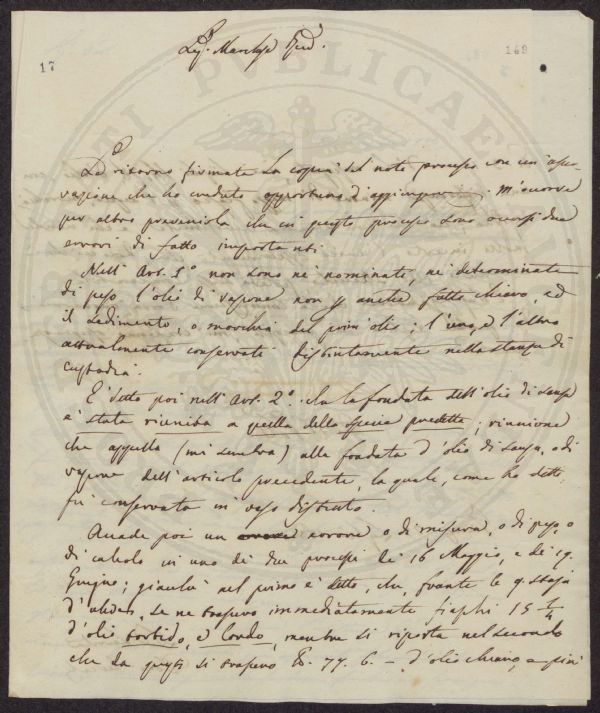 17
149
Sig.r Marchese
Le ritorno firmata la copia del noto processo con un'osser-
vazione che ho creduto opportuno d'aggiungervi. M'occorre
per altro prevenirla che in questo processo sono occorsi due
errori di fatto importanti.
Nell'Art. 1° non sono nè nominati, nè determinati
di peso l'olio di sapone non per anche fatto chiaro, ed
il sedimento, o morchia del primo olio; l'uno, e l'altro
attualmente conservati distintamente nella stanza di
custodia.
È detto poi nell'Art. 2°. che la fondata dell'olio di sansa
è stata riunita a quella della specie predetta; riunione
che appella (mi sembra) alla fondata d'olio di sansa, o di
sapone dell'articolo precedente, la quale, come ho detto,
fù conservata in vaso distinto.
Accade poi un errore o di misura, o di peso, o
di calcolo in uno di due processi de' 16 Maggio, e de' 19.
Giugno; giacchè nel primo è detto, che, frante le 9. staja
d'ulive, se ne trassero immediatamente fiaschi 15 1/4
d'olio torbido, e lordo, mentre si riporta nel secondo
che da questi si trassero lb. 77. 6. — d'olio chiaro, e più